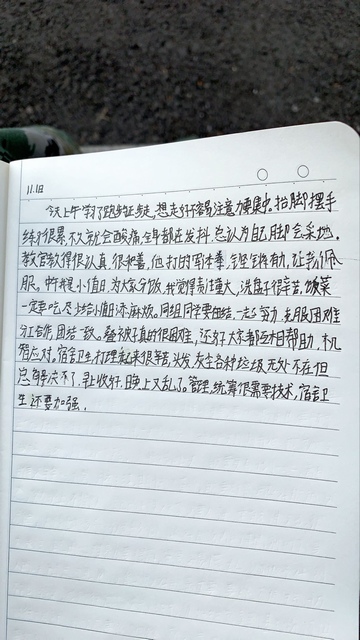 11.18
今天上午学习了跑步正步走,想走好不容易,注意力要集中.抬脚摆手
练习很累,不久就会酸痛,全身都在发抖.总认为自己脚会采地.
教官教得很认真,很和善,他打的军体拳,铿锵有力,让我们佩
服。中午我是小值日,为大家分饭,我觉得责任重大,洗盘子很辛苦,饭菜
一定要吃尽,少给小值日添麻烦。同组同学要团结,一起努力,克服困难
分工合作,团结一致。叠被子真的很困难,还好大家都互相帮助,
应对.宿舍卫生,打理起来很辛苦,头发,灰尘各种垃圾无处不在但
总解决不了.早上收好,晚上又乱了。管理,统筹很需要技术,宿舍卫
生还要加强.